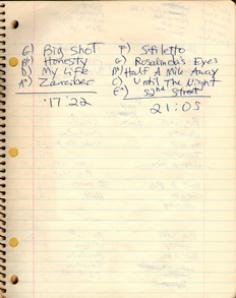 G) Big Shot
B♭) Honesty
D) My Life
A♭) Zanzibar
17:22
F) Stiletto
G) Rosalinda's Eyes
Half A Mile Away
C) Until The Night
E♭) 52nd Street
21:05